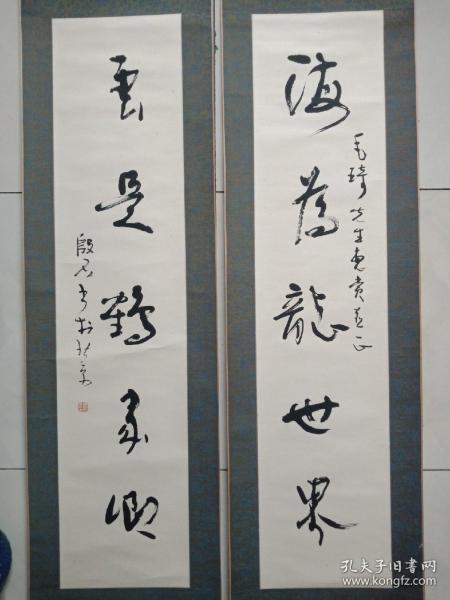 海为龍世界
毛琦先生惠賞并正
雲是鶴家鄉
殷君書於北京
孔夫子旧书网
www.kongfz.com